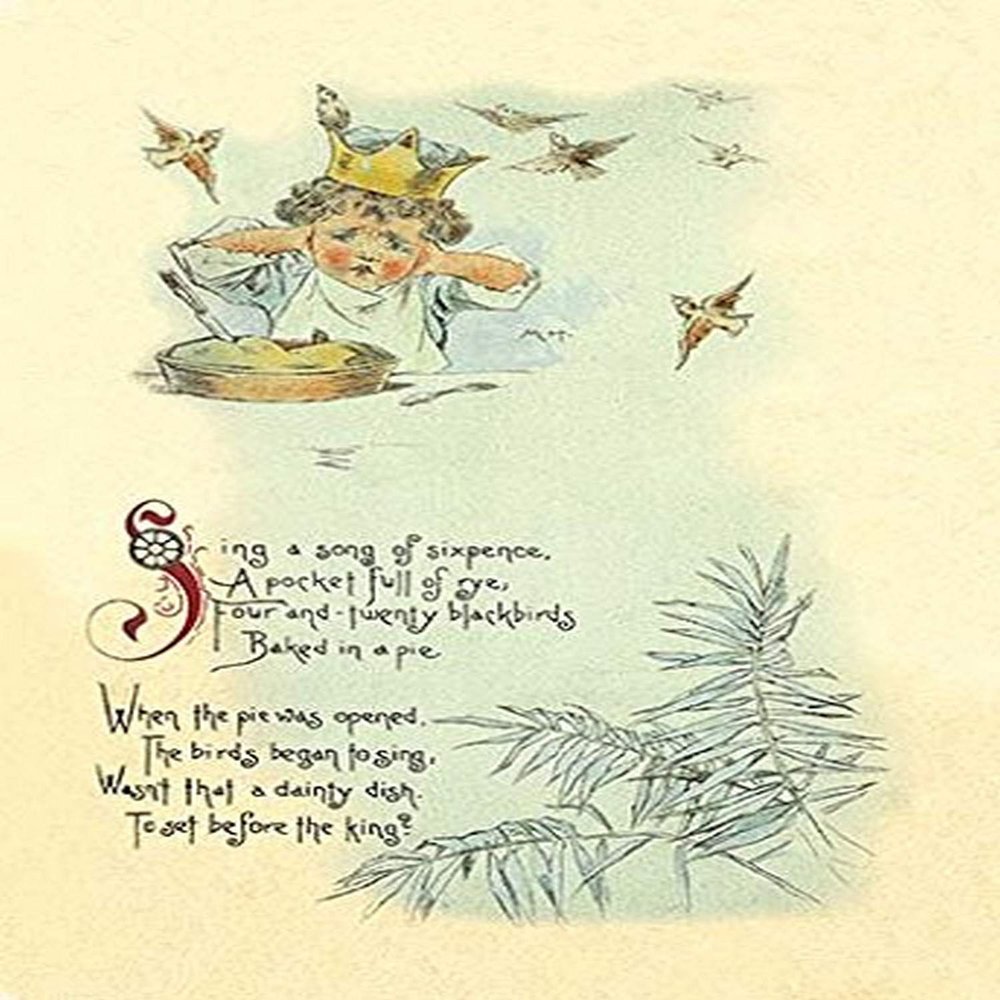 Sing a song of sixpence,
A pocket full of rye,
Four-and-twenty blackbirds
Baked in a pie
When the pie was opened,
The birds began to sing,
Wasn't that a dainty dish.
To set before the king?